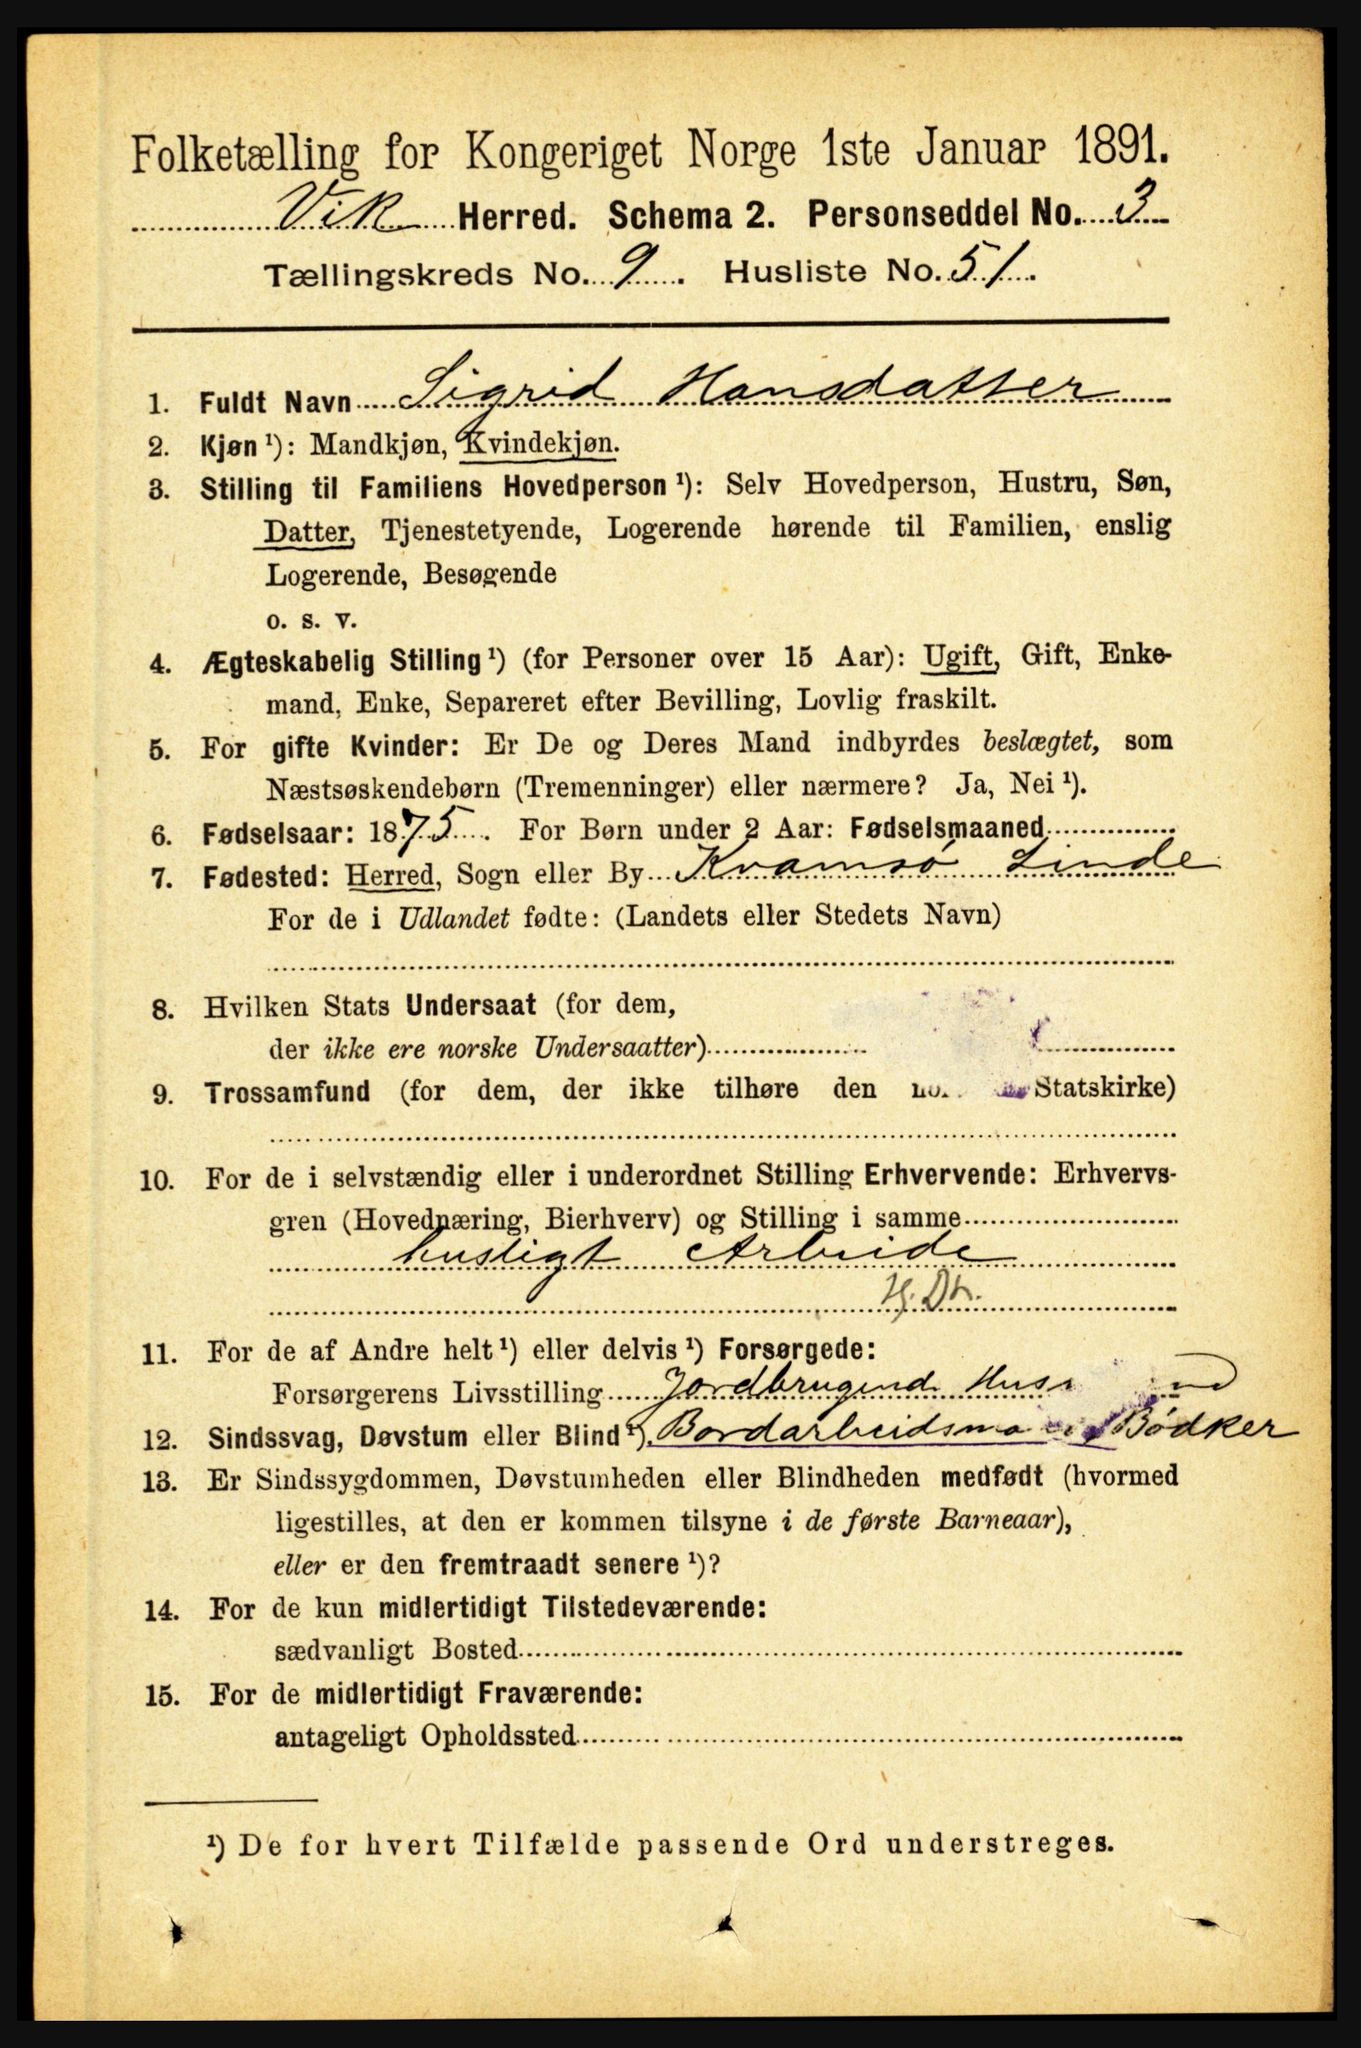 Folketælling for Kongeriget Norge 1ste Januar 1891.
Vik Herred. Schema 2. Personseddel No. 3
Tællingskreds No. 9. Husliste No. 51.
1. Fuldt Navn Sigrid Hansdatter
2. Kjøn ¹): Mandkjøn, Kvindekjøn.
3. Stilling til Familiens Hovedperson ¹): Selv Hovedperson, Hustru, Søn,
Datter, Tjenestetyende, Logerende hørende til Familien, enslig
Logerende, Besøgende
o. s. v.
4. Ægteskabelig Stilling ¹) (for Personer over 15 Aar): Ugift, Gift, Enke-
mand, Enke, Separeret efter Bevilling, Lovlig fraskilt.
5. For gifte Kvinder: Er De og Deres Mand indbyrdes beslægtet, som
Næstsøskendebørn (Tremenninger) eller nærmere? Ja, Nei ¹).
6. Fødselsaar: 1875. For Børn under 2 Aar: Fødselsmaaned
7. Fødested: Herred, Sogn eller By Kvamsø Linde
For de i Udlandet fødte: (Landets eller Stedets Navn)
8. Hvilken Stats Undersaat (for dem,
der ikke ere norske Undersaatter)
9. Trossamfund (for dem, der ikke tilhøre den Statskirke)
10. For de i selvstændig eller i underordnet Stilling Erhvervende: Erhvervs-
gren (Hovednæring, Bierhverv) og Stilling i samme
husligt Arbeide
Hj. Dtr.
11. For de af Andre helt ¹) eller delvis ¹) Forsørgede:
Forsørgerens Livsstilling Jordbrugende
12. Sindssvag, Døvstum eller Blind ¹). Bødker
13. Er Sindssygdommen, Døvstumheden eller Blindheden medfødt (hvormed
ligestilles, at den er kommen tilsyne i de første Barneaar),
eller er den fremtraadt senere ¹)?
14. For de kun midlertidigt Tilstedeværende:
sædvanligt Bosted
15. For de midlertidigt Fraværende:
antageligt Opholdssted
¹) De for hvert Tilfælde passende Ord understreges.